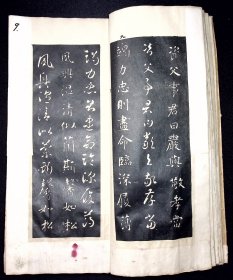 資父事君曰嚴與敬孝當
資父事君曰嚴與敬孝當
竭力忠則盡命臨深履薄
竭力忠則盡命臨深履薄
夙興溫凊似蘭斯馨如松
夙興溫凊似蘭斯馨如松
9.